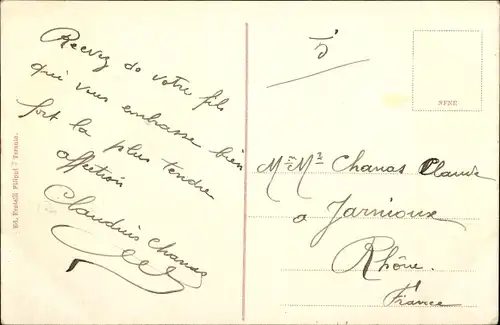 Recevez de votre fils
qui vous embrasse bien
fort la plus tendre
affection
Claudius Chanas
Ed. Fratelli Filippi - Tirania.
5
NPNE
Mr Me Chanas Claude
a Jarnioux
Rhône.
France